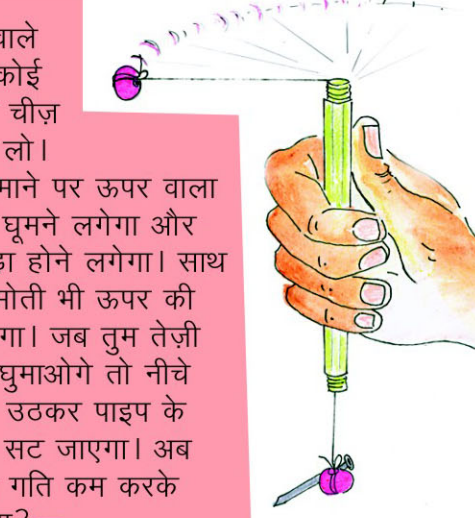 वाले
कोई
चीज़
लो।
माने पर ऊपर वाला
घूमने लगेगा और
ड़ा होने लगेगा। साथ
मोती भी ऊपर की
गा। जब तुम तेज़ी
घुमाओगे तो नीचे
उठकर पाइप के
सट जाएगा। अब
गति कम करके